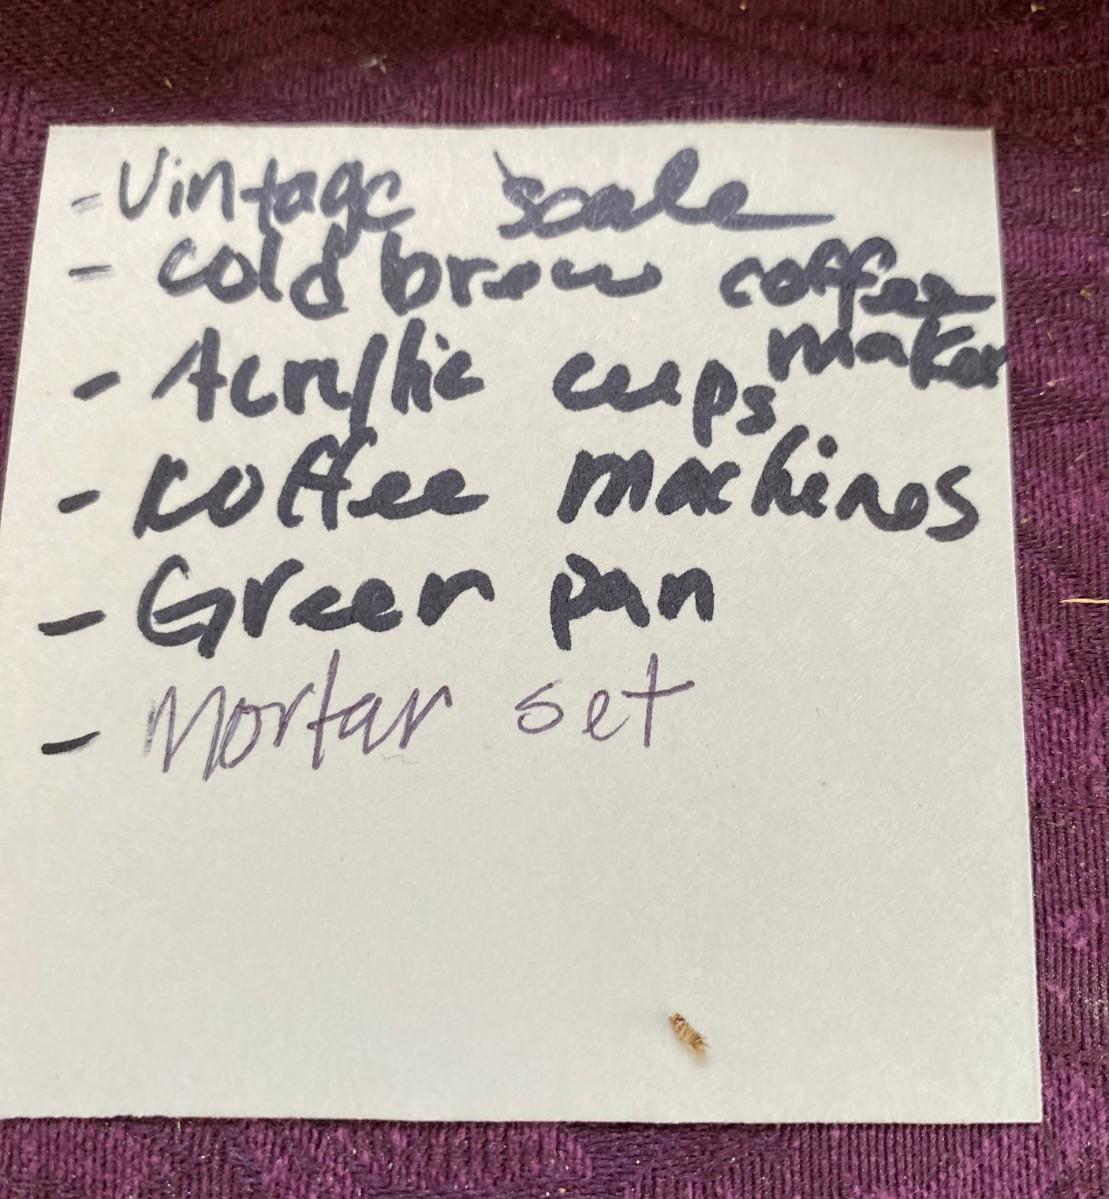 - Vintage scale
- cold brew coffee
maker
- Acrylic cups
- Coffee machines
- Green pan
- Mortar set